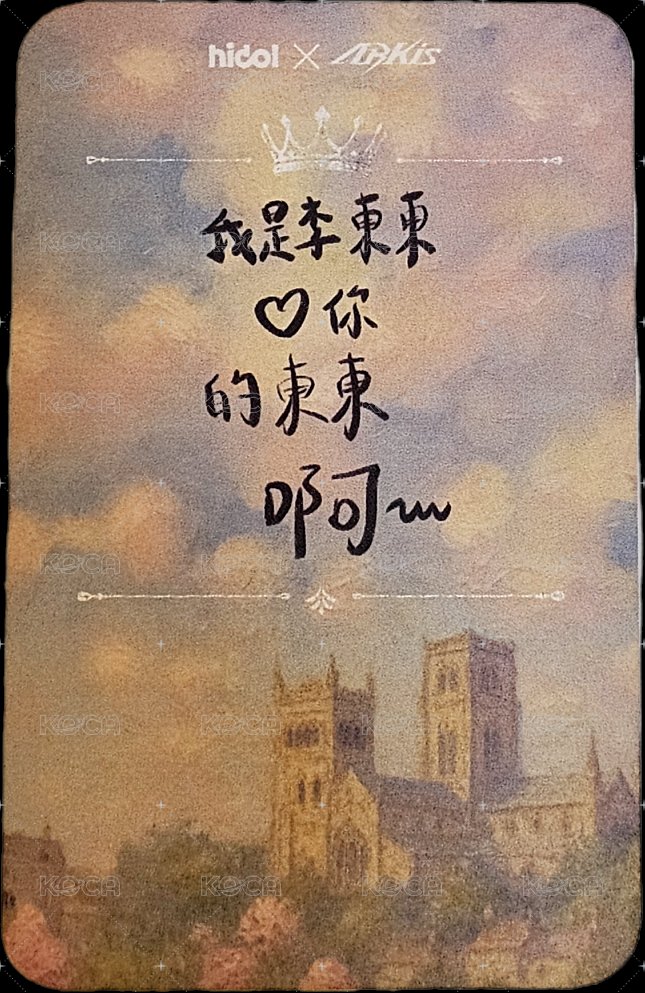 hidol × ARKis
我是李東東
♡你
的東東
啊~